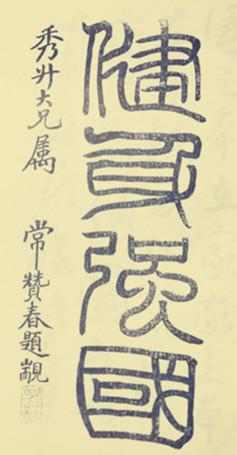 健身强國
秀升大兄属
常贊春題觀